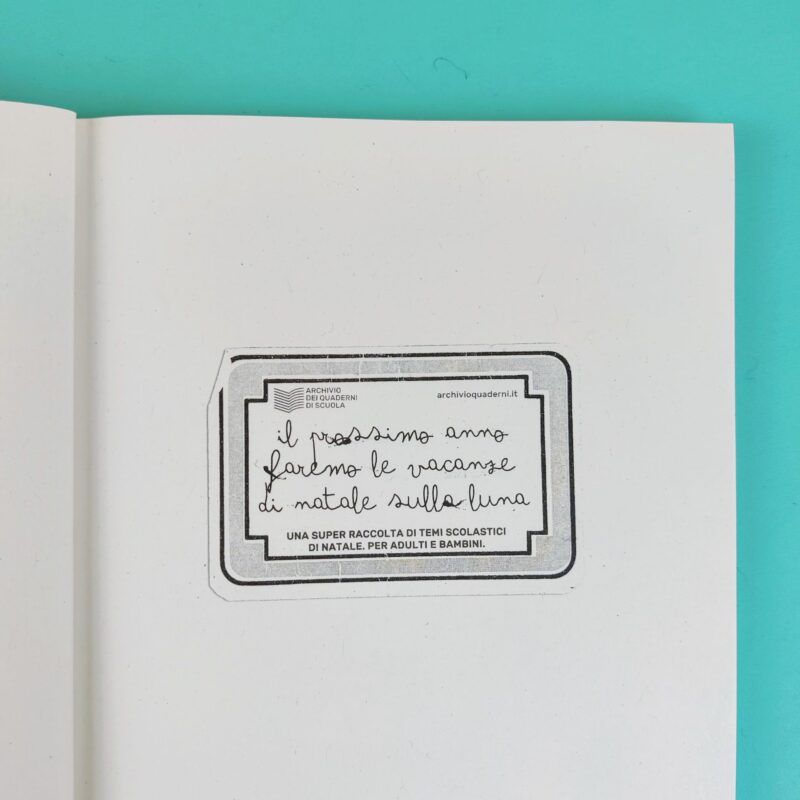 ARCHIVIO
DEI QUADERNI
DI SCUOLA
archivioquaderni.it
il prossimo anno
faremo le vacanze
di natale sulla luna
UNA SUPER RACCOLTA DI TEMI SCOLASTICI
DI NATALE. PER ADULTI E BAMBINI.